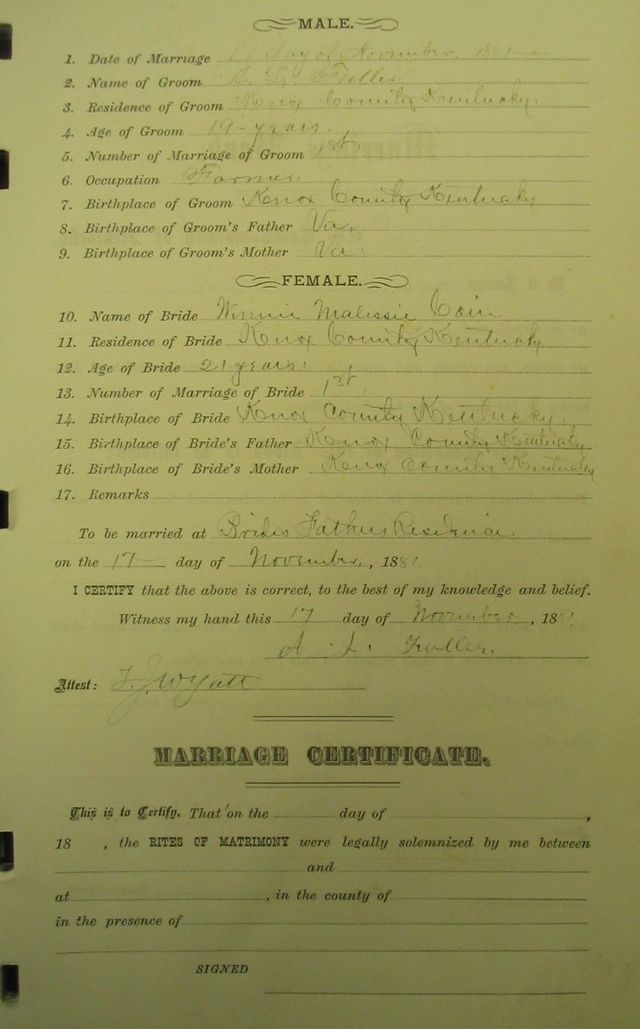 MALE.
1. Date of Marriage 17 day of November, 1881
2. Name of Groom A. L. Fuller
3. Residence of Groom Knox County Kentucky.
4. Age of Groom 19 years.
5. Number of Marriage of Groom 1st
6. Occupation Farmer.
7. Birthplace of Groom Knox County Kentucky
8. Birthplace of Groom's Father Va.
9. Birthplace of Groom's Mother Va.
FEMALE.
10. Name of Bride Winnie Malissie Cain
11. Residence of Bride Knox County Kentucky
12. Age of Bride 21 years.
13. Number of Marriage of Bride 1st.
14. Birthplace of Bride Knox County Kentucky.
15. Birthplace of Bride's Father Knox County Kentucky
16. Birthplace of Bride's Mother Knox County Kentucky
17. Remarks
To be married at Brides Fathers Residence
on the 17 day of November, 1881
I CERTIFY that the above is correct, to the best of my knowledge and belief.
Witness my hand this 17 day of November, 1881
A. L. Fuller.
Attest: Wyatt
MARRIAGE CERTIFICATE.
This is to Certify, That on the day of ,
18 , the RITES OF MATRIMONY were legally solemnized by me between
and
at , in the county of
in the presence of
SIGNED